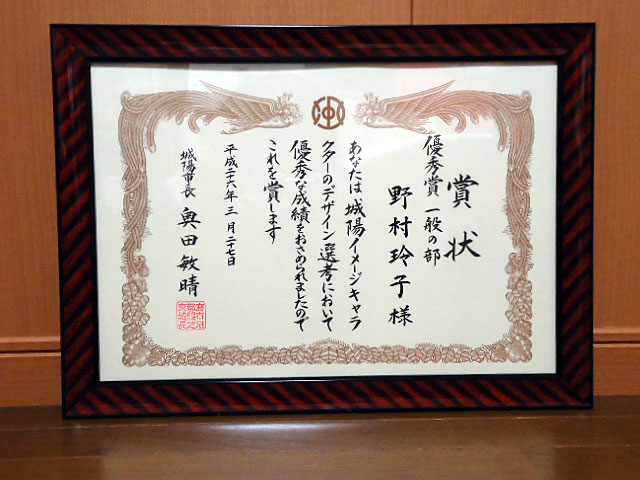 賞状
優秀賞 一般の部
野村玲子様
あなたは城陽イメージキャラ
クターのデザイン選考において
優秀な成績をおさめられましたので
これを賞します
平成二十六年三月二十七日
城陽市長 奥田敏晴